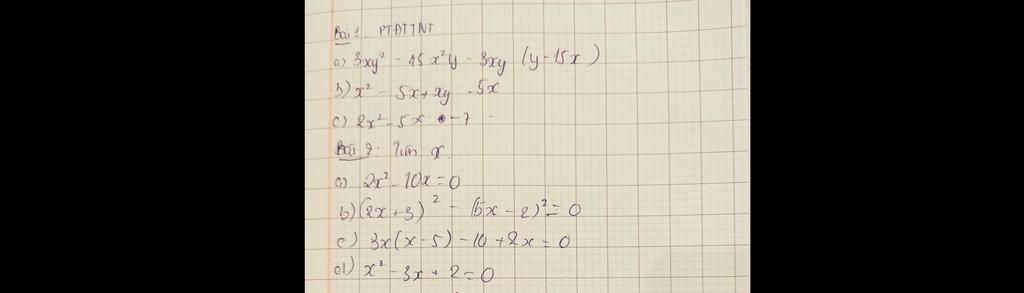 Bài 1. PTĐTTNT
a) 3xy² - 45x²y - 3xy (y - 15x)
b) x² - 5x + xy - 5x
c) 2x² - 5x - 7
Bài 2. Tìm x.
a) 2x² - 10x = 0
b) (2x + 3)² - (5x - 2)² = 0
c) 3x(x - 5) - 10 + 2x = 0
d) x² - 3x + 2 = 0